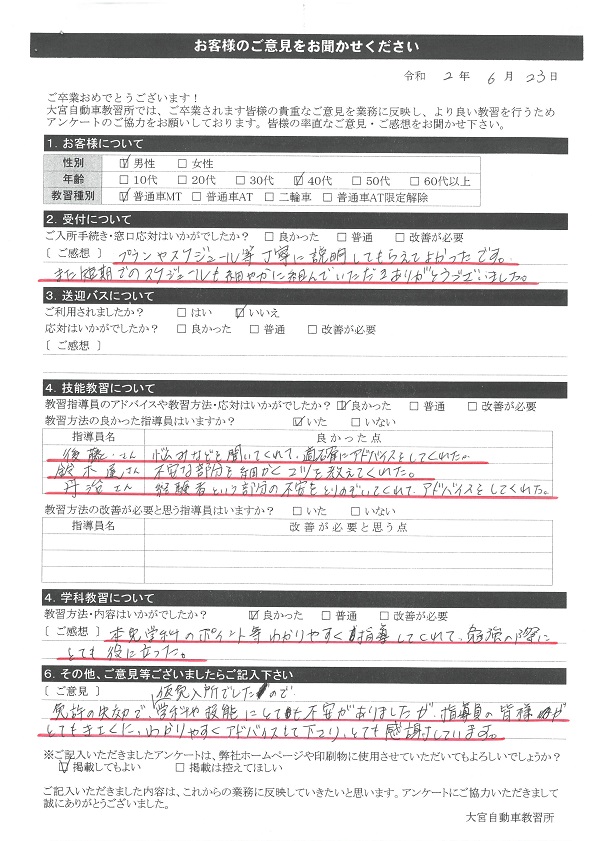 お客様のご意見をお聞かせください
令和 2 年 6 月 23 日
ご卒業おめでとうございます！
大宮自動車教習所では、ご卒業されます皆様の貴重なご意見を業務に反映し、より良い教習を行うため
アンケートのご協力をお願いしております。皆様の率直なご意見・ご感想をお聞かせ下さい。
1. お客様について
性別 ☑男性 □女性
年齢 □10代 □20代 □30代 ☑40代 □50代 □60代以上
教習種別 ☑普通車MT □普通車AT □二輪車 □普通車AT限定解除
2. 受付について
ご入所手続き・窓口応対はいかがでしたか？ □良かった □普通 □改善が必要
［ご感想］ プランやスケジュール等丁寧に説明してもらえてよかったです。
また短期でのスケジュールも細やかに組んでいただきありがとうございました。
3. 送迎バスについて
ご利用されましたか？ □はい ☑いいえ
応対はいかがでしたか？ □良かった □普通 □改善が必要
［ご感想］
4. 技能教習について
教習指導員のアドバイスや教習方法・応対はいかがでしたか？ ☑良かった □普通 □改善が必要
教習方法の良かった指導員はいますか？ ☑いた □いない
指導員名 良かった点
後藤 さん 悩みなどを聞いてくれて、適確にアドバイスをしてくれた。
鈴木 さん 不安な部分を細かくコツを教えてくれた。
丹治 さん 経験者という部分の不安をとりのぞいてくれて、アドバイスをしてくれた。
教習方法の改善が必要と思う指導員はいますか？ □いた □いない
指導員名 改善が必要と思う点
4. 学科教習について
教習方法・内容はいかがでしたか？ ☑良かった □普通 □改善が必要
［ご感想］ 本免学科のポイント等わかりやすく指導してくれて、勉強の際に
とても役に立った。
6. その他、ご意見等ございましたらご記入下さい
［ご意見］ 仮免入所でしたので
免許の失効で、学科や技能にとても不安がありましたが、指導員の皆様が
とてもきさくに、わかりやすくアドバイスして下さり、とても感謝しています。
※ご記入いただきましたアンケートは、弊社ホームページや印刷物に使用させていただいてもよろしいでしょうか？
☑掲載してもよい □掲載は控えてほしい
ご記入いただきました内容は、これからの業務に反映していきたいと思います。アンケートにご協力いただきまして
誠にありがとうございました。
大宮自動車教習所